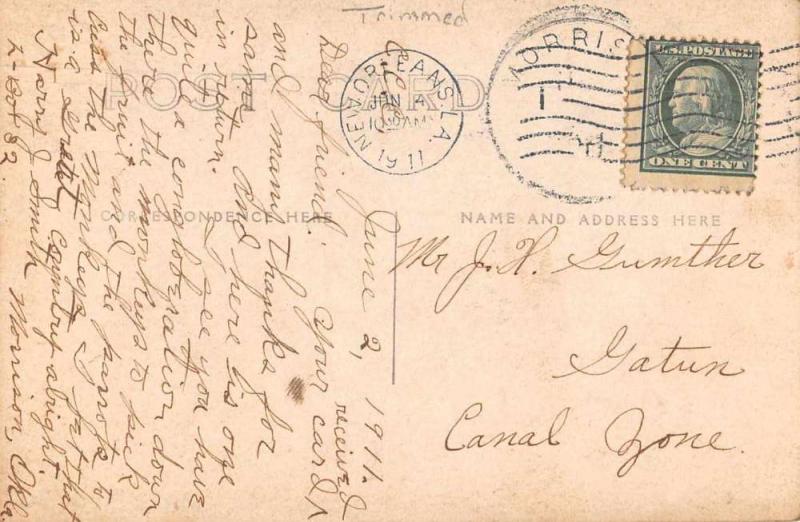 Trimmed
POST CARD
NEW ORLEANS, LA.
JUN 4
10 AM
1911
MORRIS
U.S. POSTAGE
ONE CENT
CORRESPONDENCE HERE
NAME AND ADDRESS HERE
June 2, 1911.
Dear friend: Your card received
and many thanks for
same. And here is one
in return. I see you have
quite a conglobreation down
there the monkeys to pick
the fruit and the parrots to
cuss the monkeys. I bet that
is a great country alright.
Harry J. Smith Morrison, Okla.
L-Box 82
Mr J. H. Gumther
Gatun
Canal Zone.